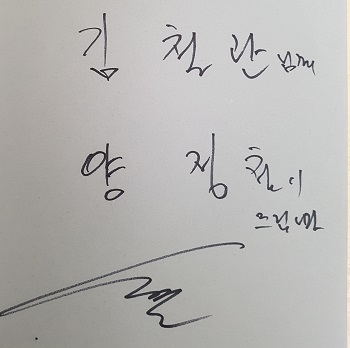 김 철관 님께
양 정철이
드립니다